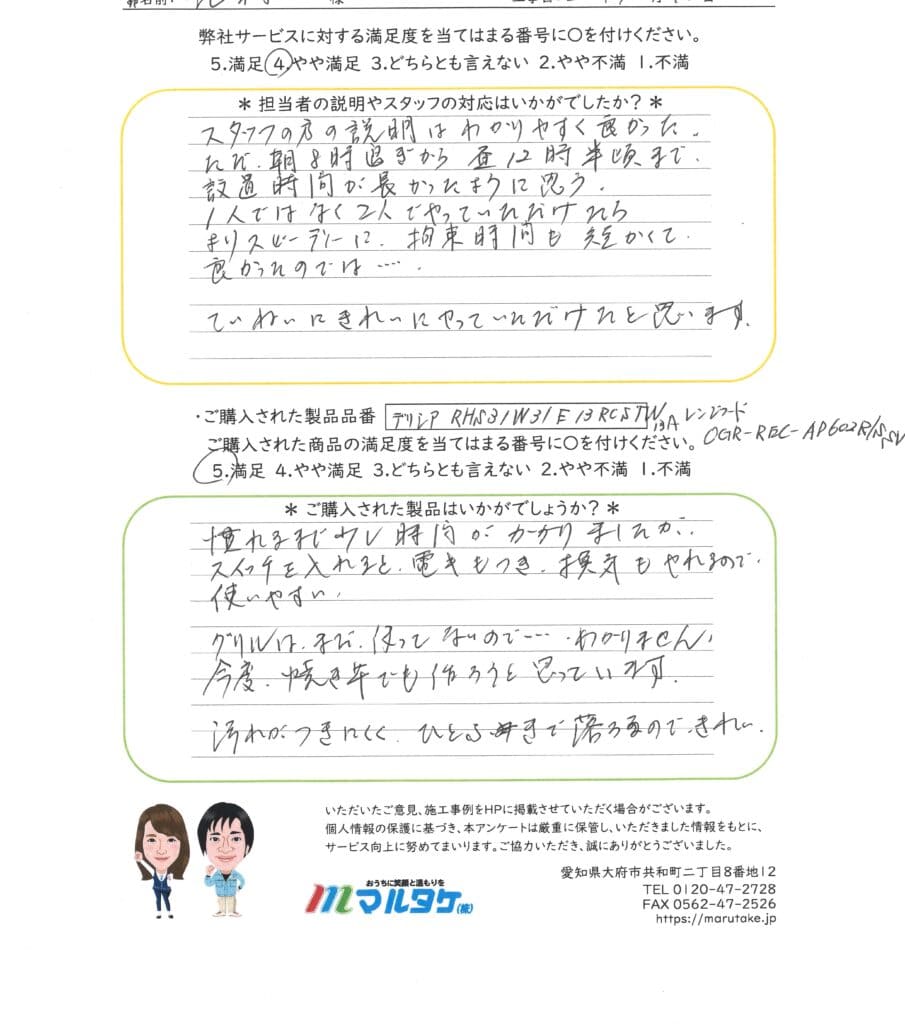 様
弊社サービスに対する満足度を当てはまる番号に〇を付けください。
5.満足 4.やや満足 3.どちらとも言えない 2.やや不満 1.不満
＊担当者の説明やスタッフの対応はいかがでしたか？＊
スタッフの方の説明はわかりやすく良かった。
ただ、朝8時過ぎから昼12時半頃まで、
設置時間が長かったように思う。
1人ではなく2人でやっていただけたら
よりスピーディーに、拘束時間も短かくて
良かったのでは……。
ていねいにきれいにやっていただけたと思います。
・ご購入された製品品番 デリシア RHS31W31E13RCSTW
13A レンジフード
OGR-REC-AP602R/LSV
ご購入された商品の満足度を当てはまる番号に〇を付けください。
5.満足 4.やや満足 3.どちらとも言えない 2.やや不満 1.不満
＊ご購入された製品はいかがでしょうか？＊
慣れるまで少し時間がかかりましたが、
スイッチを入れると、電気もつき、換気もやれるので、
使いやすい。
グリルは、まだ、使ってないので……わかりません。
今度、焼き芋でも作ろうと思っています。
汚れがつきにくく、ひとふきで落ちるので、きれい。
いただいたご意見、施工事例をHPに掲載させていただく場合がございます。
個人情報の保護に基づき、本アンケートは厳重に保管し、いただきました情報をもとに、
サービス向上に努めてまいります。ご協力いただき、誠にありがとうございました。
おうちに笑顔と温もりを
マルタケ(株)
愛知県大府市共和町二丁目8番地12
TEL 0120-47-2728
FAX 0562-47-2526
https://marutake.jp